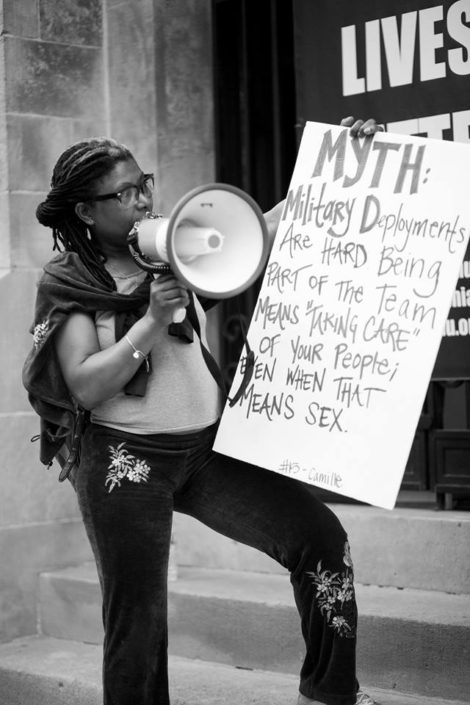 LIVES
MYTH:
Military Deployments
ARE HARD Being
PART OF THE TEAM
MEANS "TAKING CARE"
OF YOUR PEOPLE;
EVEN WHEN THAT
MEANS SEX.
#43 - Camille